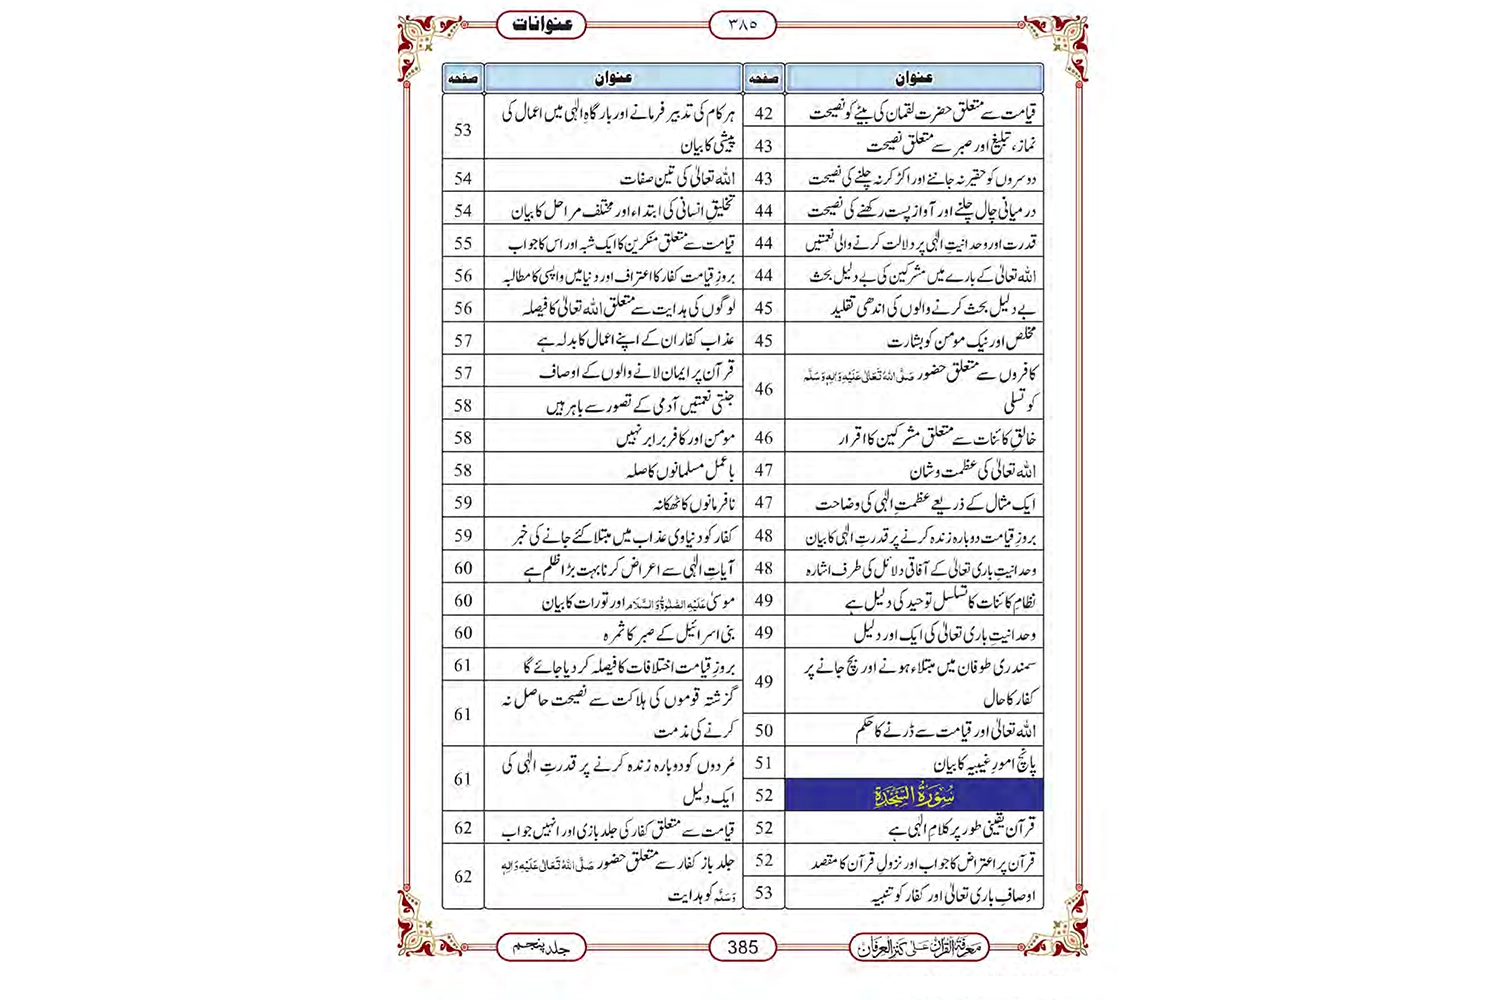 عنوانات
۳۸۵
عنوان صفحہ
قیامت سے متعلق حضرت لقمان کی بیٹے کو نصیحت 42
نماز، تبلیغ اور صبر سے متعلق نصیحت 43
دوسروں کو حقیر نہ جاننے اور اکڑ کر نہ چلنے کی نصیحت 43
درمیانی چال چلنے اور آواز پست رکھنے کی نصیحت 44
قدرت اور وحدانیتِ الٰہی پر دلالت کرنے والی نعمتیں 44
اللہ تعالیٰ کے بارے میں مشرکین کی بے دلیل بحث 44
بے دلیل بحث کرنے والوں کی اندھی تقلید 45
مخلص اور نیک مومن کو بشارت 45
کافروں سے متعلق حضور صَلَّی اللہُ تَعَالٰی عَلَیْہِ وَاٰلِہٖ وَسَلَّم
کو تسلی 46
خالقِ کائنات سے متعلق مشرکین کا اقرار 46
اللہ تعالیٰ کی عظمت و شان 47
ایک مثال کے ذریعے عظمتِ الٰہی کی وضاحت 47
بروزِ قیامت دوبارہ زندہ کرنے پر قدرتِ الٰہی کا بیان 48
وحدانیتِ باری تعالیٰ کے آفاقی دلائل کی طرف اشارہ 48
نظامِ کائنات کا تسلسل توحید کی دلیل ہے 49
وحدانیتِ باری تعالیٰ کی ایک اور دلیل 49
سمندری طوفان میں مبتلاء ہونے اور بچ جانے پر
کفار کا حال 49
اللہ تعالیٰ اور قیامت سے ڈرنے کا حکم 50
پانچ امورِ غیبیہ کا بیان 51
سُوْرَۃُ السَّجْدَۃِ 52
قرآن یقینی طور پر کلامِ الٰہی ہے 52
قرآن پر اعتراض کا جواب اور نزولِ قرآن کا مقصد 52
اوصافِ باری تعالیٰ اور کفار کو تنبیہ 53
عنوان صفحہ
ہر کام کی تدبیر فرمانے اور بارگاہِ الٰہی میں اعمال کی
پیشی کا بیان 53
اللہ تعالیٰ کی تین صفات 54
تخلیقِ انسانی کی ابتداء اور مختلف مراحل کا بیان 54
قیامت سے متعلق منکرین کا ایک شبہ اور اس کا جواب 55
بروزِ قیامت کفار کا اعتراف اور دنیا میں واپسی کا مطالبہ 56
لوگوں کی ہدایت سے متعلق اللہ تعالیٰ کا فیصلہ 56
عذاب کفار ان کے اپنے اعمال کا بدلہ ہے 57
قرآن پر ایمان لانے والوں کے اوصاف 57
جنتی نعمتیں آدمی کے تصور سے باہر ہیں 58
مومن اور کافر برابر نہیں 58
باعمل مسلمانوں کا صلہ 58
نافرمانوں کا ٹھکانہ 59
کفار کو دنیاوی عذاب میں مبتلا کئے جانے کی خبر 59
آیاتِ الٰہی سے اعراض کرنا بہت بڑا ظلم ہے 60
موسیٰ عَلَیْہِ الصَّلٰوۃُ وَالسَّلَام اور تورات کا بیان 60
بنی اسرائیل کے صبر کا ثمرہ 60
بروزِ قیامت اختلافات کا فیصلہ کر دیا جائے گا 61
گزشتہ قوموں کی ہلاکت سے نصیحت حاصل نہ
کرنے کی مذمت 61
مُردوں کو دوبارہ زندہ کرنے پر قدرتِ الٰہی کی
ایک دلیل 61
قیامت سے متعلق کفار کی جلد بازی اور انہیں جواب 62
جلد باز کفار سے متعلق حضور صَلَّی اللہُ تَعَالٰی عَلَیْہِ وَاٰلِہٖ
وَسَلَّم کو ہدایت 62
معرفۃ القرآن علی کنز العرفان
385
جلد پنجم